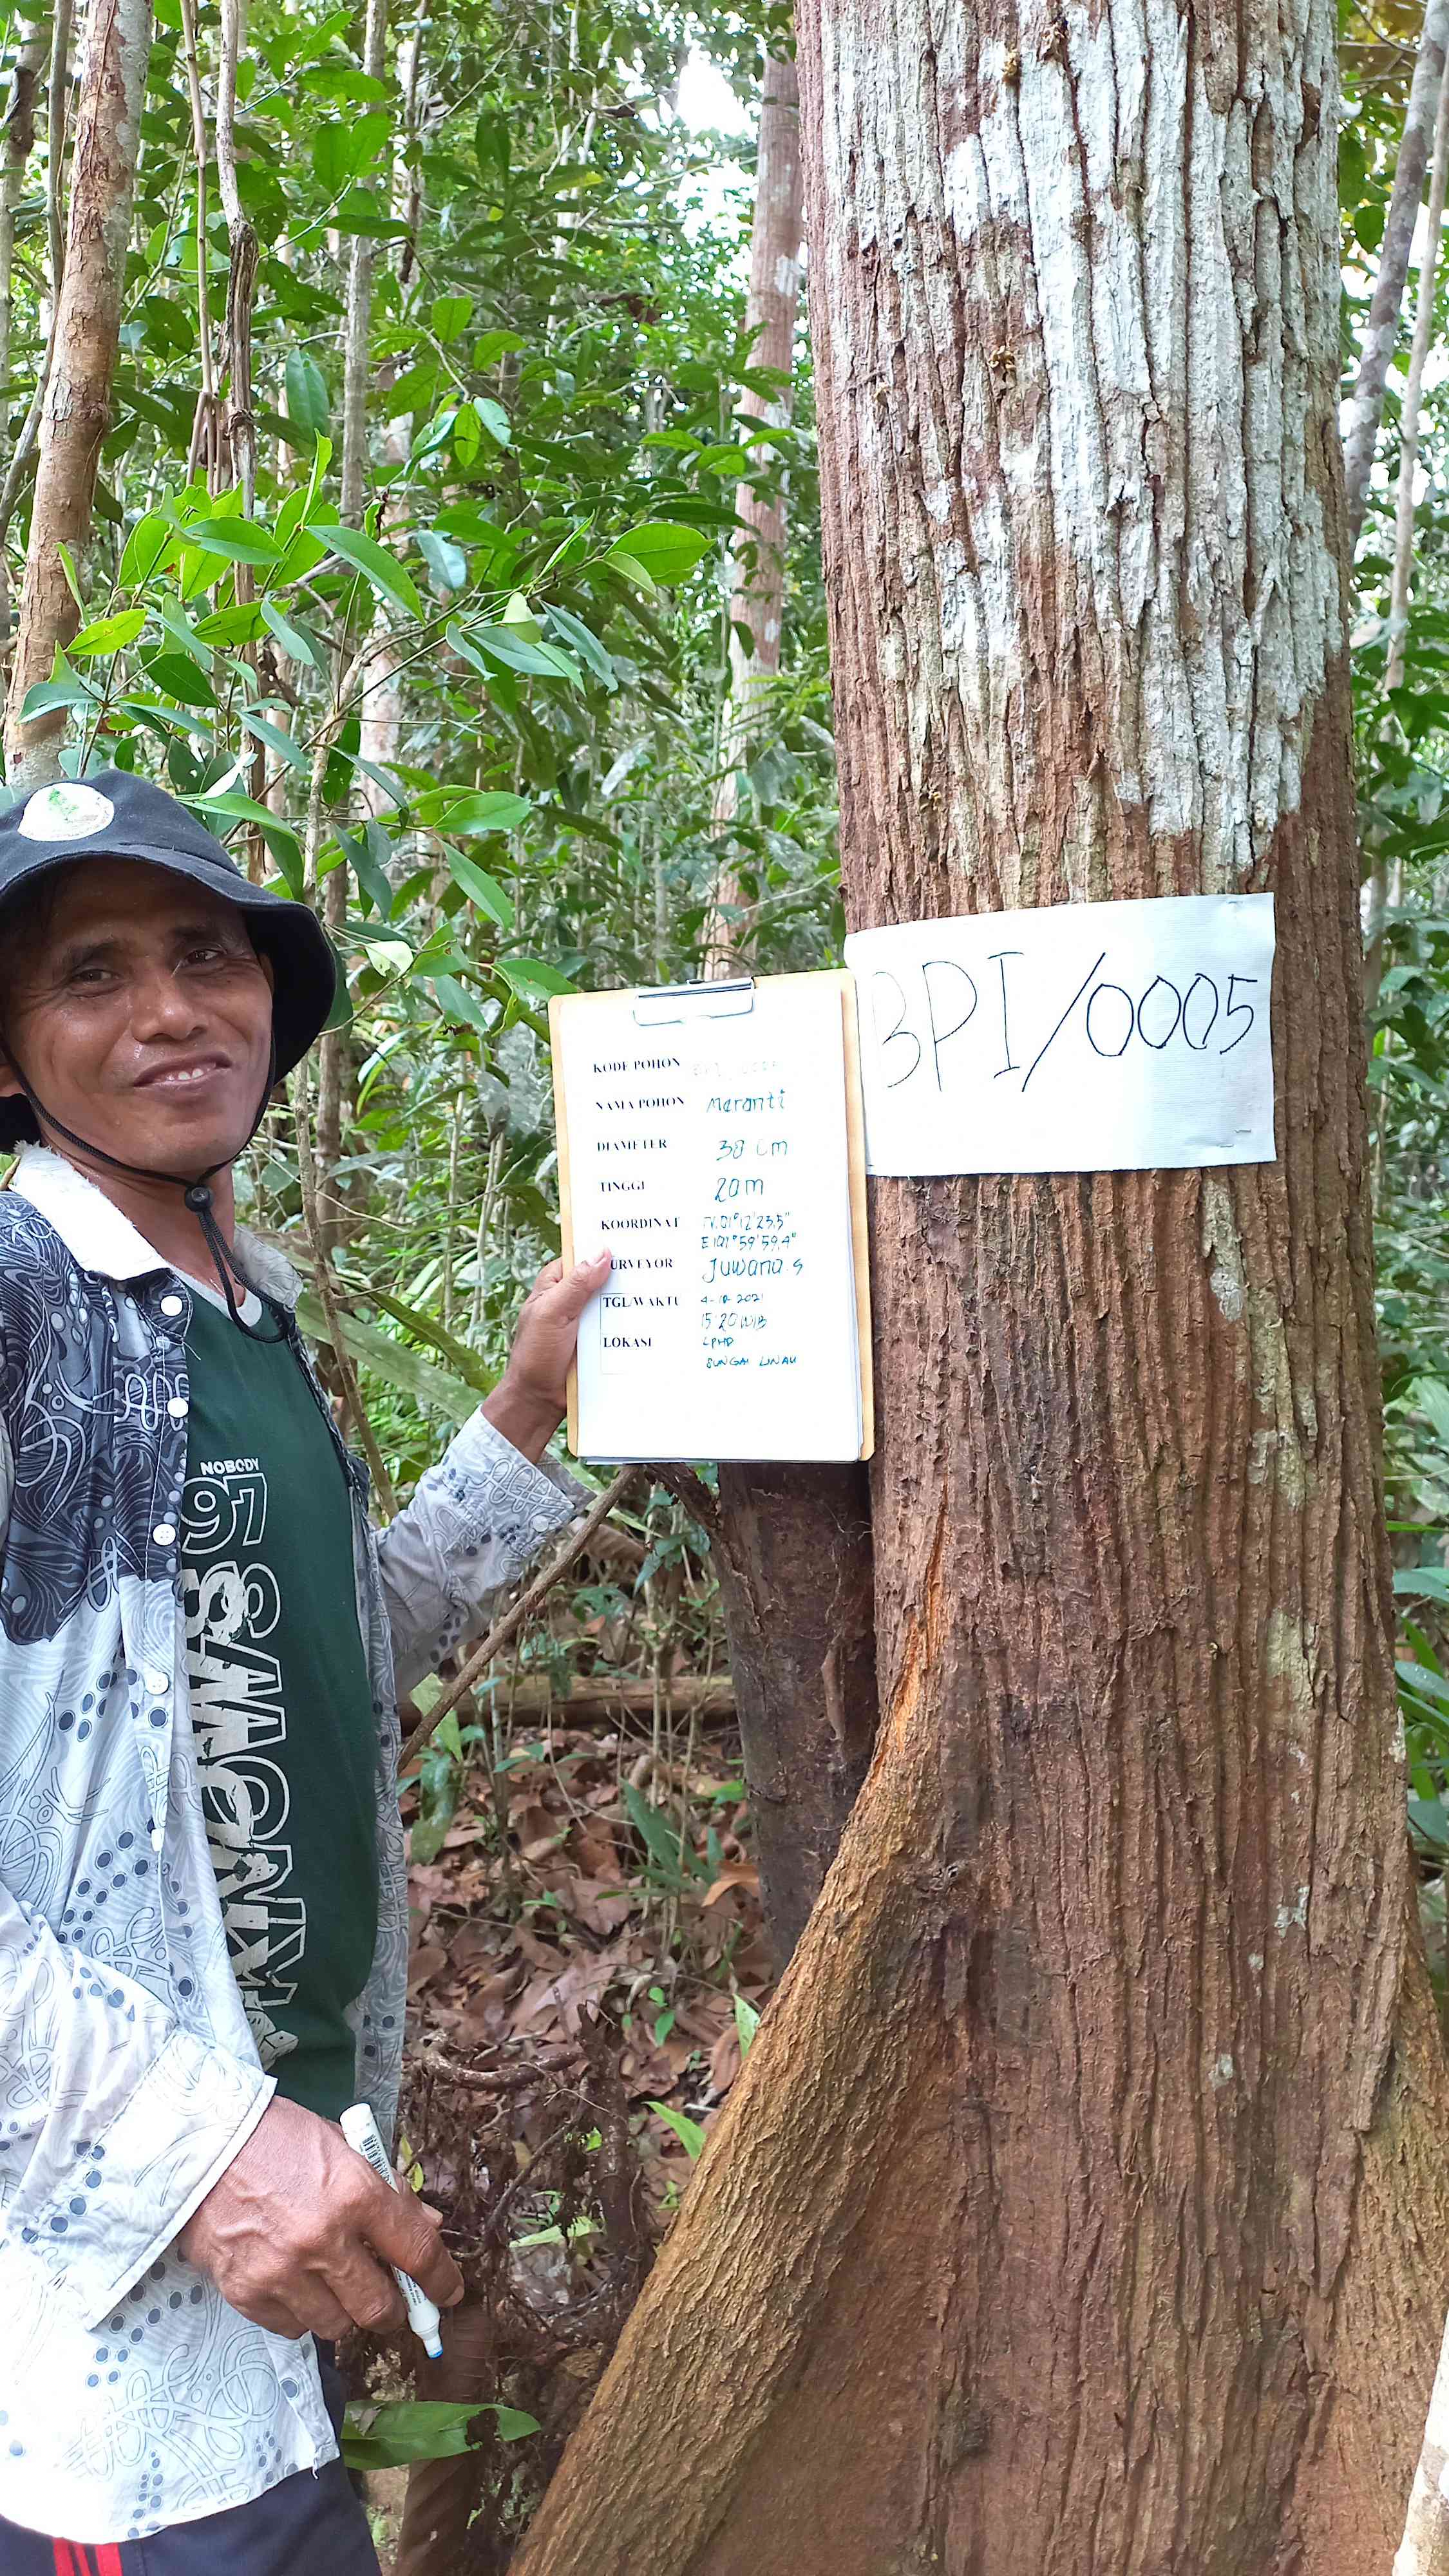 BPI/0005
KODE POHON
NAMA POHON Meranti
DIAMETER 38 Cm
TINGGI 20m
KOORDINAT N.01°12'23.5"
E 101°59'59,4"
SURVEYOR Juwana.S
TGL/WAKTU 4-10-2021
15:20 WIB
LOKASI LPHD
SUNGAI LINAU
NOBODY
97